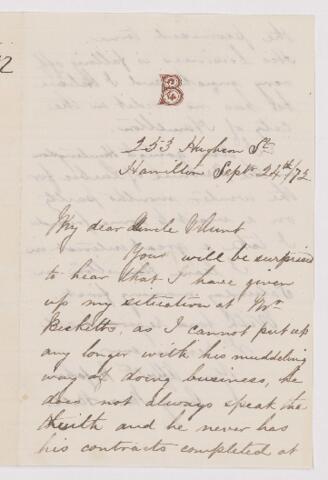 B
253 Hughson St.
Hamilton Sept 24th/72
My dear Uncle & Aunt
Your will be surprised
to hear that I have given
up my situation at Mr
Becketts, as I cannot put up
any longer with his muddeling
way of doing business, he
does not always speak the
truth and he never has
his contracts completed at